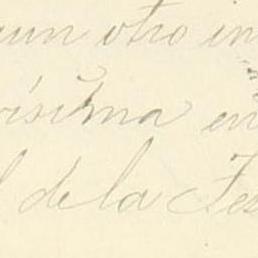 un otro in
vísima en
l de la Tes